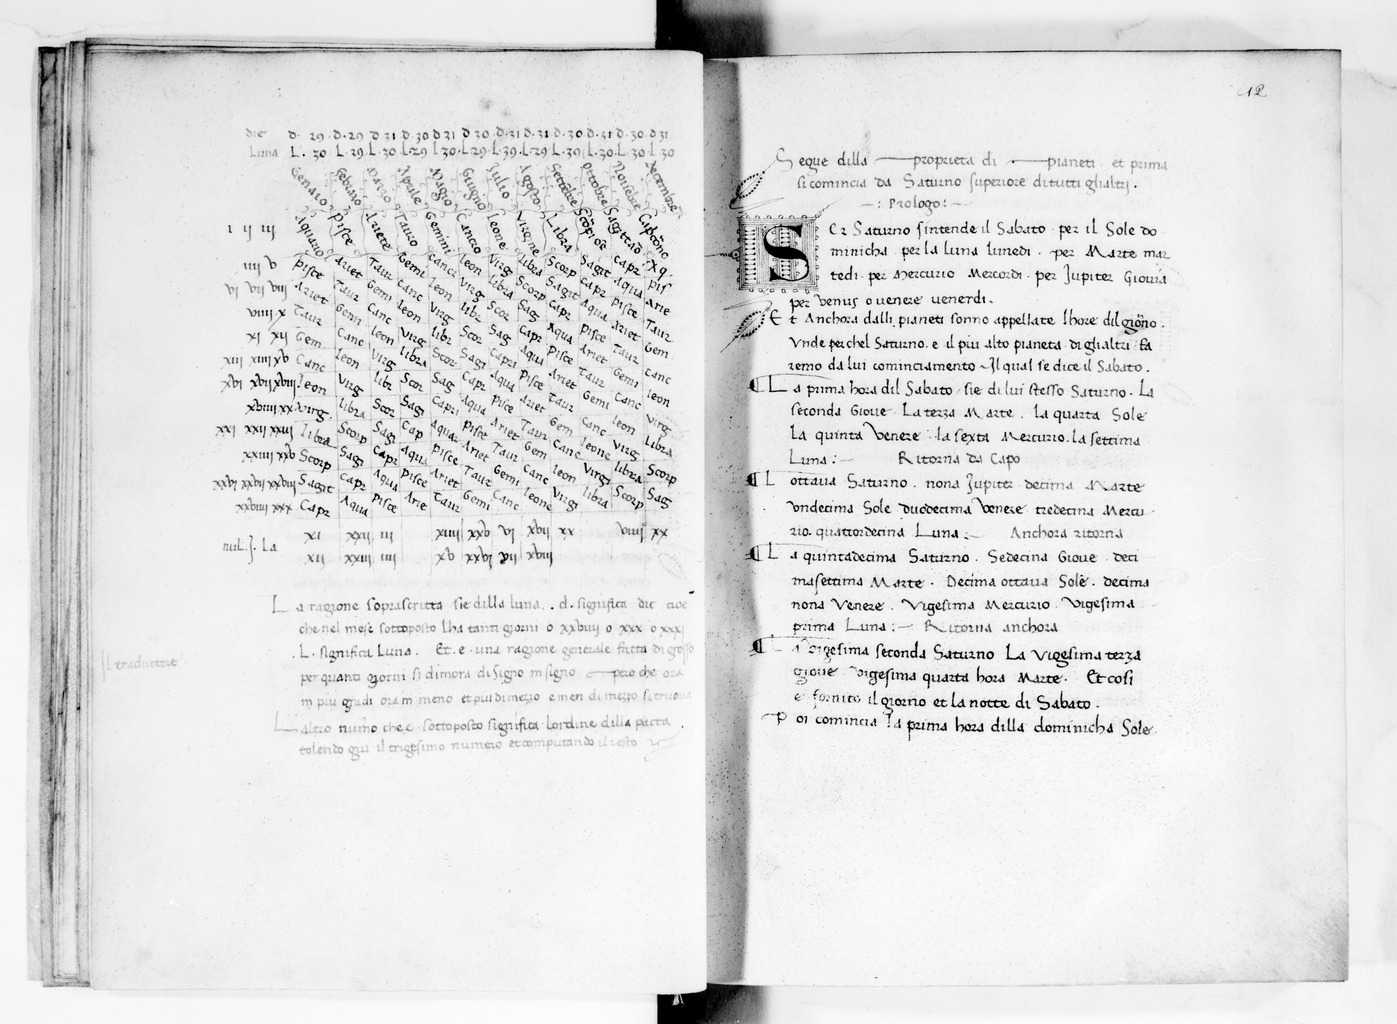 die d. 29 d. 29 d 31 d. 30 d 31 d 30 d. 31 d. 31 d. 30 d. 31 d. 30 d 31
Luna L. 30 L. 29 L. 30 L. 29 L. 30 L. 29 L. 39 L. 29 L. 39 L. 30 L. 30 L. 30
Genaio Febraio Marzo Aprile Magio Giugno Julio Agosto Settēbre Ottobre Novēbre Decembre
I IJ IIJ Aquario Pisce Ariete Tauro Gemini Cancro Leone Virgine Libra Scorpioe Sagittaō Capcōnc
IIIJ V Pisce Ariet Taur Gemi Canc Leon Virg Libra Scorp Sagit Capr Aq.
VJ VIJ VIIJ Ariet Taur Gemi Canc leon Virg libra Scorp Sagit Capr Aqua Pis
VIIIJ X Taur Gemi Canc Leon Virg Libr Scor Sag Capr Aqua Pisce Arie
XI XIJ Gem Canc leon Virg libr Scor Sag Capr Aqua Pisce Ariet Taur
XIIJ XIIIJ XV Canc leon Virg libra Scor Sagi Capri Aqua Pisce Ariet Taur Gem
XVI XVIJ XVIIJ leon Virg libr Scor Sag Capr Aqua Pisce Ariet Taur Gemi Canc
XVIIIJ XX Virg. libra Scor Sagi Capri Aqua Pisce Ariet Taur Gemi Canc leon
XXI XXIJ XXIIJ libra Scorp Sagi Cap Aqua Pisce Ariet Taur Gem Canc leon Virg
XXIIIJ XXV Scorp Sagi Capr Aqua Pisce Ariet Taur Gemi Canc leone Virg Libra
XXVI XXVIJ XXVIIJ Sagit Capr Aqua Pisce Ariet Taur Gemi Canc leon Virgi libra Scorp
XXVIIIJ XXX Capr Aqua Pisce Arie Taur Gemi Canc leone Virgi libra Scorp Sag
XI XXIJ IIJ XIIIJ XXV VI XVIJ XX VIIIJ XX
nuL. ]. La
XIJ XXIIJ IIIJ XV XXVI VIJ XVIIJ
La ragione soprascritta sie dilla luna. . d. significa die cioe
che nel mese sottoposto lha tanti giorni o xxviiij o xxx o xxxj
. L. significa Luna . Et. e. una ragione generale fatta di grosso
per quanti giorni si dimora di signo in signo pero che ora
in piu gradi ora in meno et piu di mezzo e men di mezzo si truova
Laltro numo che e sottoposto significa lordine dilla pacta .
tolendo qui il trigesimo numero et computando il resto
Il traduttore
12
Segue dilla proprieta di pianeti et prima
si comincia da Saturno superiore di tutti glialtri .
-: Prologo :-
S Er Saturno sintende il Sabato . per il Sole do
minicha . per la luna lunedi . per Marte mar
tedi . per Mercurio Mercordi . per Jupiter Giovia
per Venus o venere venerdi .
Et Anchora dalli pianeti sonno appellate lhore dil giōno .
Unde perchel Saturno . e il piu alto pianeta di glialtri fa
remo da lui cominciamento . Il qual se dice il Sabato .
¶ La prima hora dil Sabato sie di lui stesso Saturno . La
seconda Giove . La terza Marte . la quarta Sole
La quinta Venere la sexta Mercurio . la settima
Luna :- Ritorna da Capo
¶ Lottava Saturno . nona Jupiter decima Marte
undecima Sole duodecima Venere tredecima Mercu
rio . quattordecina Luna :- Anchora ritorna
¶ La quintadecima Saturno . Sedecina Giove . deci
masettima Marte . Decima ottava Sole . decima
nona Venere . Vigesima Mercurio . Vigesima
prima Luna :- Ritorna anchora
¶ La Vigesima seconda Saturno La Vigesima terza
giove Vigesima quarta hora Marte . Et cosi
e fornito il giorno et la notte di Sabato .
Poi comincia la prima hora dilla dominicha Sole